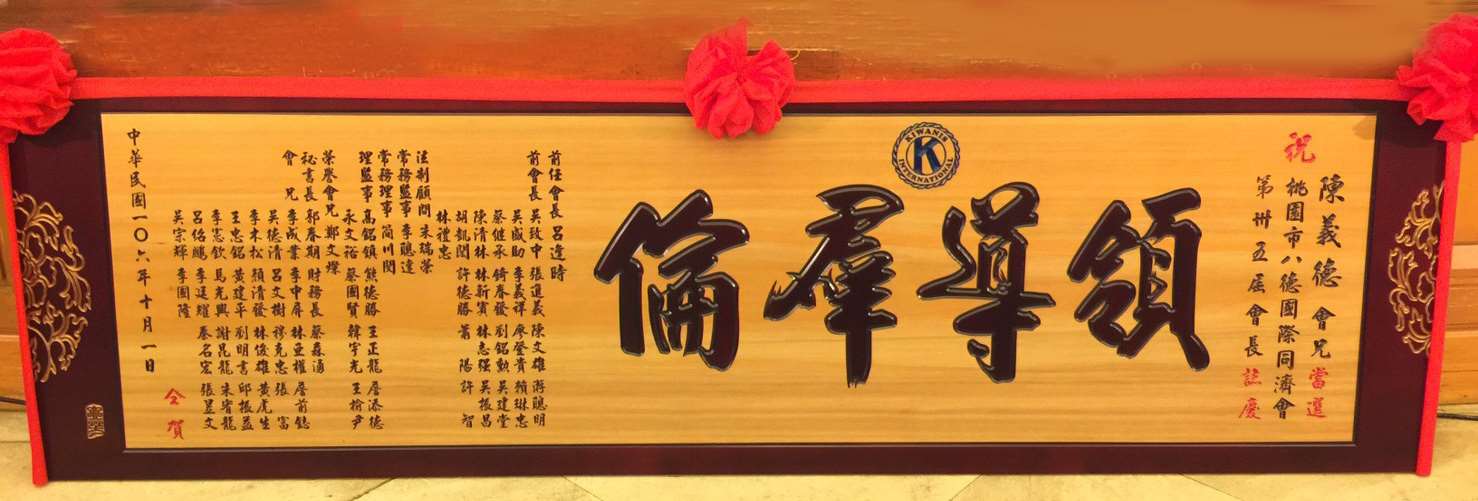 祝
陳義德 會兄當選
桃園市八德國際同濟會
第卅五屆會長誌慶
KIWANIS INTERNATIONAL
K
領導羣倫
前任會長 呂逢時
前會長 吳致中 張進義 陳文雄 蔣聰明
吳盛助 李義祥 廖登貴 賴琳忠
蔡健永 錡春發 劉銘勳 吳建堂
陳清林 林新寶 林志强 吳振昌
胡凱閔 許德勝 蕭陽 許智
林禮忠
法制顧問 朱瑞榮
常務監事 李聰達
常務理事 簡川閔
理監事 高銘鎮 熊德勝 王正龍 詹添德
永文裕 蔡國賢 韓宇光 王榆尹
榮譽會兄 鄭文燦
秘書長 郭春期 財務長 蔡森涌
會兄 李成業 李中屏 林亚權 詹前鋕
吳德清 呂文樹 穆克忠 張富
李木松 賴清發 林俊雄 黃虎生
王忠銘 黃建平 劉明書 邱振益
李憲欽 馬光興 謝昆龍 朱睿龍
呂紹鵬 李廷耀 秦名宏 張昱文
吳宗輝 李國隆
仝賀
中華民國一〇六年十月一日